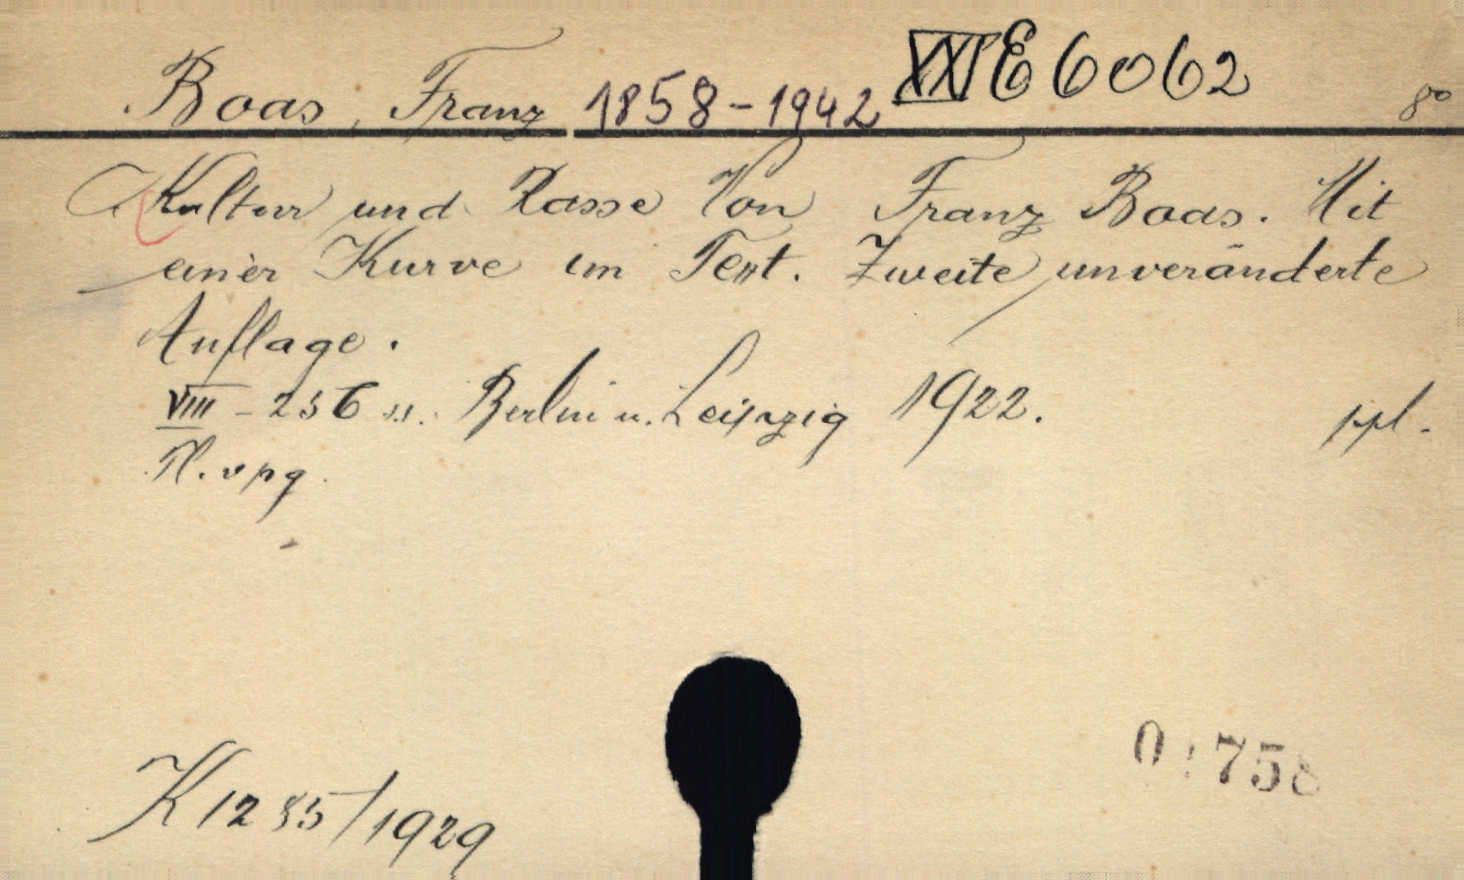 Boas, Franz 1858-1942 XXI E 6062
8º
Kultur und Rasse Von Franz Boas. Mit
einer Kurve im Text. Zweite unveränderte
Auflage.
VIII - 256 ss. Berlin u. Leipzig 1922.
ppl.
K 1285/1929